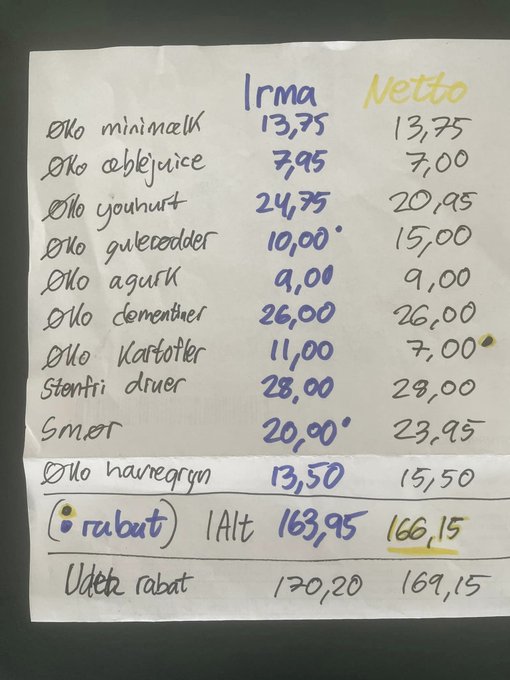 Irma Netto
Øko minimælk 13,75 13,75
Øko æblejuice 7,95 7,00
Øko youhurt 24,75 20,95
Øko gulerødder 10,00• 15,00
Øko agurk 9,00 9,00
Øko clementiner 26,00 26,00
Øko Kartofler 11,00 7,00•
Stenfri druer 28,00 28,00
Smør 20,00• 23,95
Øko havregryn 13,50 15,50
(: rabat) IAlt 163,95 166,15
Uden rabat 170,20 169,15